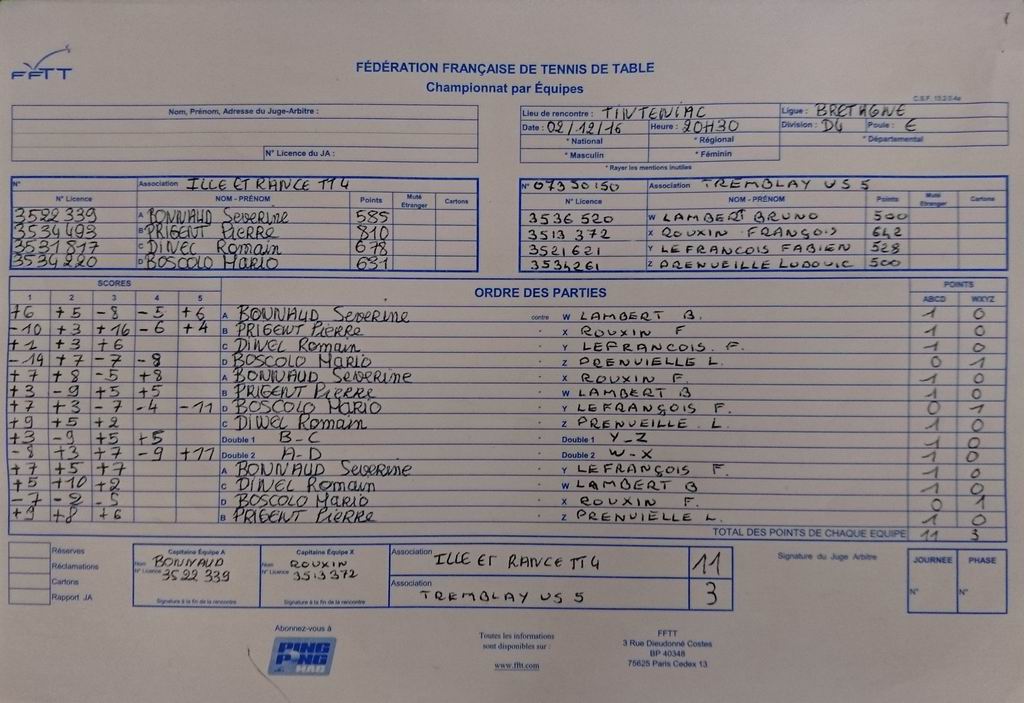 FFTT
FÉDÉRATION FRANÇAISE DE TENNIS DE TABLE
Championnat par Équipes
C.S.F. 13.2/3.4a
Nom, Prénom, Adresse du Juge-Arbitre :
N° Licence du JA :
Lieu de rencontre : TINTENIAC Ligue : BRETAGNE
Date : 02/12/16 Heure : 20H30 Division : D4 Poule : E
* National * Régional * Départemental
* Masculin * Féminin
* Rayer les mentions inutiles
N° Association ILLE ET RANCE TT 4
N° Licence NOM - PRÉNOM Points Muté Etranger Cartons
3522 339 A BONNAUD Severine 585
3534493 B PRIGENT Pierre 810
3531817 C DINEL Romain 678
3534220 D BOSCOLO Mario 631
N° 07350150 Association TREMBLAY US 5
N° Licence NOM - PRÉNOM Points Muté Etranger Cartons
3536 520 W LAMBERT BRUNO 500
3513 372 X ROUXIN FRANÇOIS 642
3521621 Y LEFRANCOIS FABIEN 528
3534261 Z PRENUEILLE LUDOVIC 500
SCORES ORDRE DES PARTIES POINTS
1 2 3 4 5 ABCD WXYZ
+6 +5 -8 -5 +6 A BONNAUD Severine contre W LAMBERT B. 1 0
-10 +3 +16 -6 +4 B PRIGENT Pierre X ROUXIN F 1 0
+2 +3 +6 C DINEL Romain Y LEFRANCOIS. F. 1 0
-19 +7 -7 -8 D BOSCOLO Mario Z PRENUIELLE L. 0 1
+7 +8 -5 +8 A BONNAUD Severine X ROUXIN F. 1 0
+3 -9 +5 +5 B PRIGENT Pierre W LAMBERT B 1 0
+7 +3 -7 -4 -11 D BOSCOLO Mario Y LEFRANÇOIS F. 0 1
+9 +5 +2 C DINEL Romain Z PRENUEILLE L. 1 0
+3 -9 +5 +5 Double 1 B-C Double 1 Y-Z 1 0
-8 +3 +7 -9 +11 Double 2 A-D Double 2 W-X 1 0
+7 +5 +7 A BONNAUD Severine Y LEFRANÇOIS F. 1 0
+5 +10 +2 C DINEL Romain W LAMBERT B 1 0
-7 -2 -5 D BOSCOLO Mario X ROUXIN F. 0 1
+9 +8 +6 B PRIGENT Pierre Z PRENUIELLE L. 1 0
TOTAL DES POINTS DE CHAQUE EQUIPE 11 3
Réserves
Réclamations
Cartons
Rapport JA
Capitaine Équipe A
Nom BONNAUD
N° Licence 3522 339
Signature à la fin de la rencontre
Capitaine Équipe X
Nom ROUXIN
N° Licence 3513372
Signature à la fin de la rencontre
Association ILLE ET RANCE TT4 11
Association TREMBLAY US 5 3
Signature du Juge Arbitre
JOURNEE PHASE
N° N°
Abonnez-vous à
PING PONG MAG
Toutes les informations
sont disponibles sur :
www.fftt.com
FFTT
3 Rue Dieudonné Costes
BP 40348
75625 Paris Cedex 13